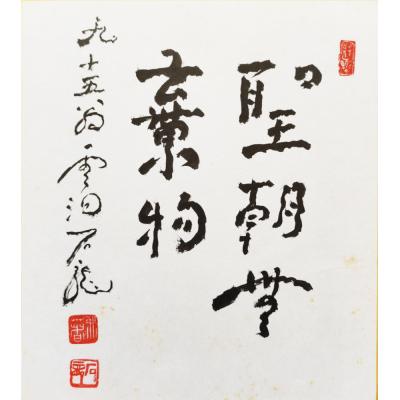 聖朝無
棄物
九十五翁雲泊石龍